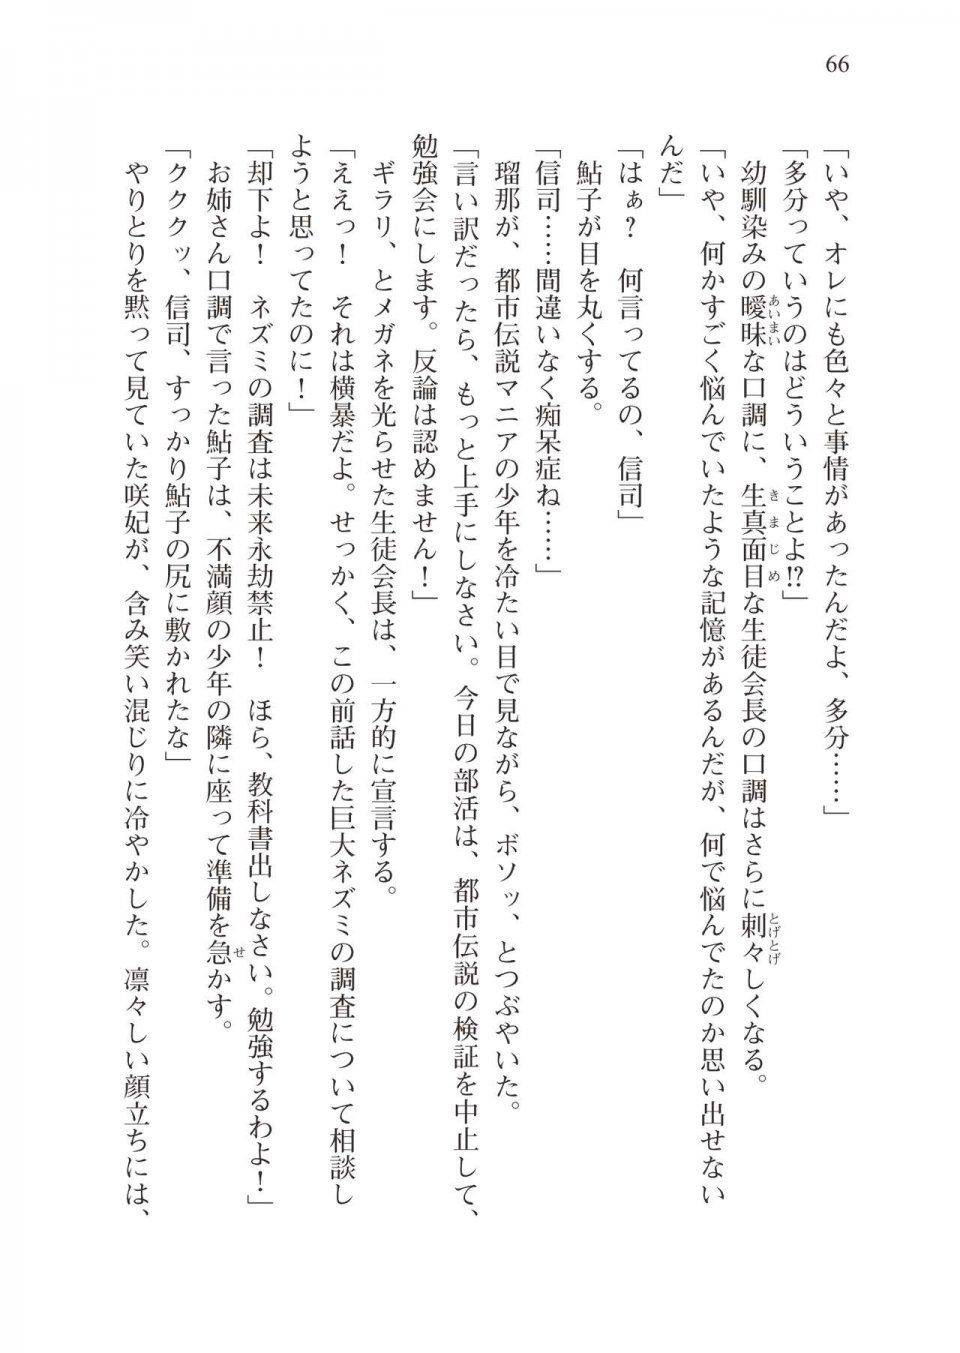 66
「いや、オレにも色々と事情があったんだよ、多分……」
「多分っていうのはどういうことよ!?」
幼馴染みの曖昧な口調に、生真面目な生徒会長の口調はさらに刺々しくなる。
「いや、何かすごく悩んでいたような記憶があるんだが、何で悩んでたのか思い出せない
んだ」
「はぁ？　何言ってるの、信司」
鮎子が目を丸くする。
「信司……間違いなく痴呆症ね……」
瑠那が、都市伝説マニアの少年を冷たい目で見ながら、ボソッ、とつぶやいた。
「言い訳だったら、もっと上手にしなさい。今日の部活は、都市伝説の検証を中止して、
勉強会にします。反論は認めません！」
ギラリ、とメガネを光らせた生徒会長は、一方的に宣言する。
「ええっ！　それは横暴だよ。せっかく、この前話した巨大ネズミの調査について相談し
ようと思ってたのに！」
「却下よ！　ネズミの調査は未来永劫禁止！　ほら、教科書出しなさい。勉強するわよ！」
お姉さん口調で言った鮎子は、不満顔の少年の隣に座って準備を急かす。
「クククッ、信司、すっかり鮎子の尻に敷かれたな」
やりとりを黙って見ていた咲妃が、含み笑い混じりに冷やかした。凛々しい顔立ちには、